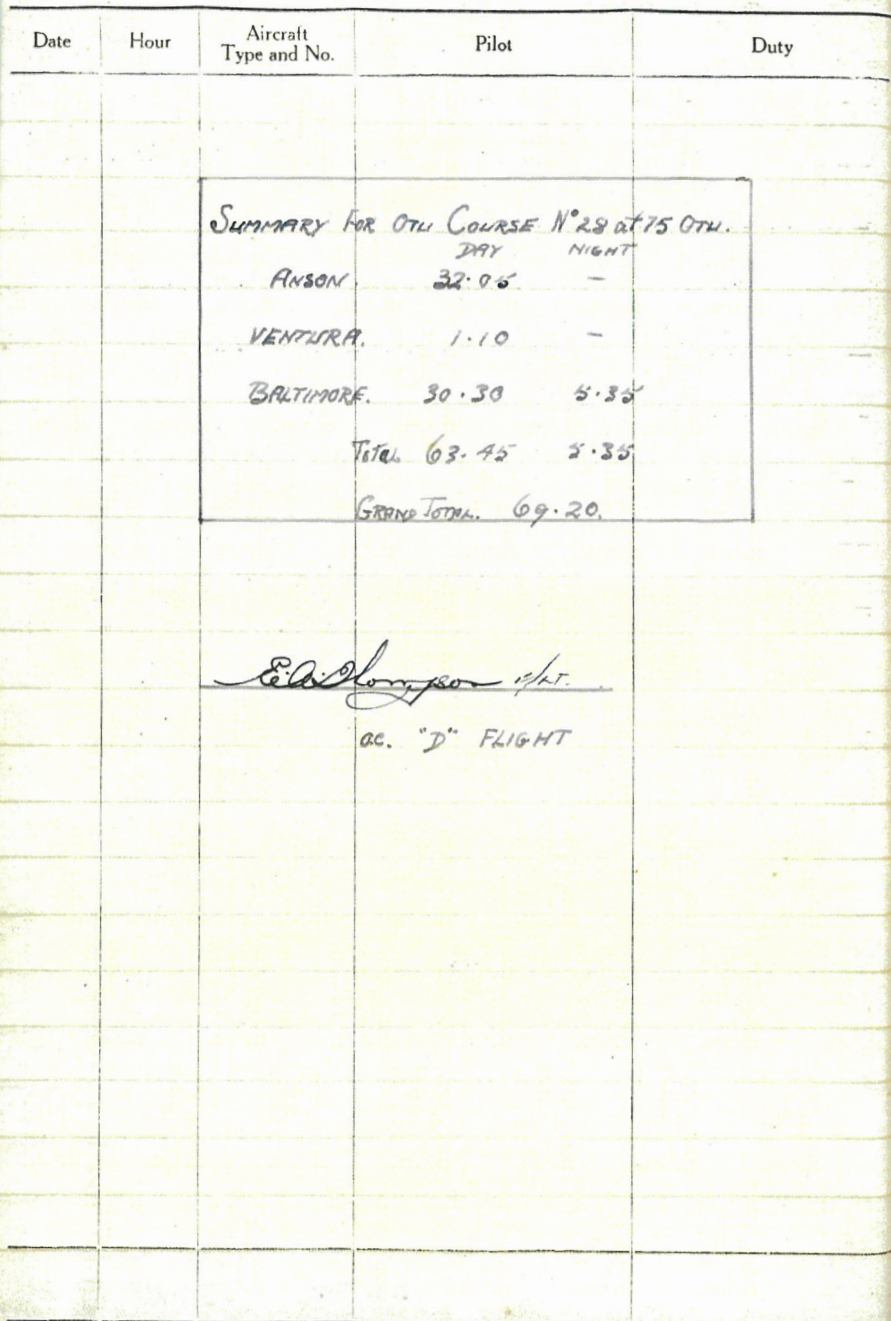 Date Hour Aircraft Type and No. Pilot Duty
SUMMARY FOR OTU COURSE N° 28 at 75 OTU.
DAY NIGHT
ANSON. 32.05 –
VENTURA. 1.10 –
BALTIMORE. 30.30 5.35
Total 63.45 5.35
GRAND TOTAL. 69.20.
E.A. Thompson F/LT.
O.C. "D" FLIGHT